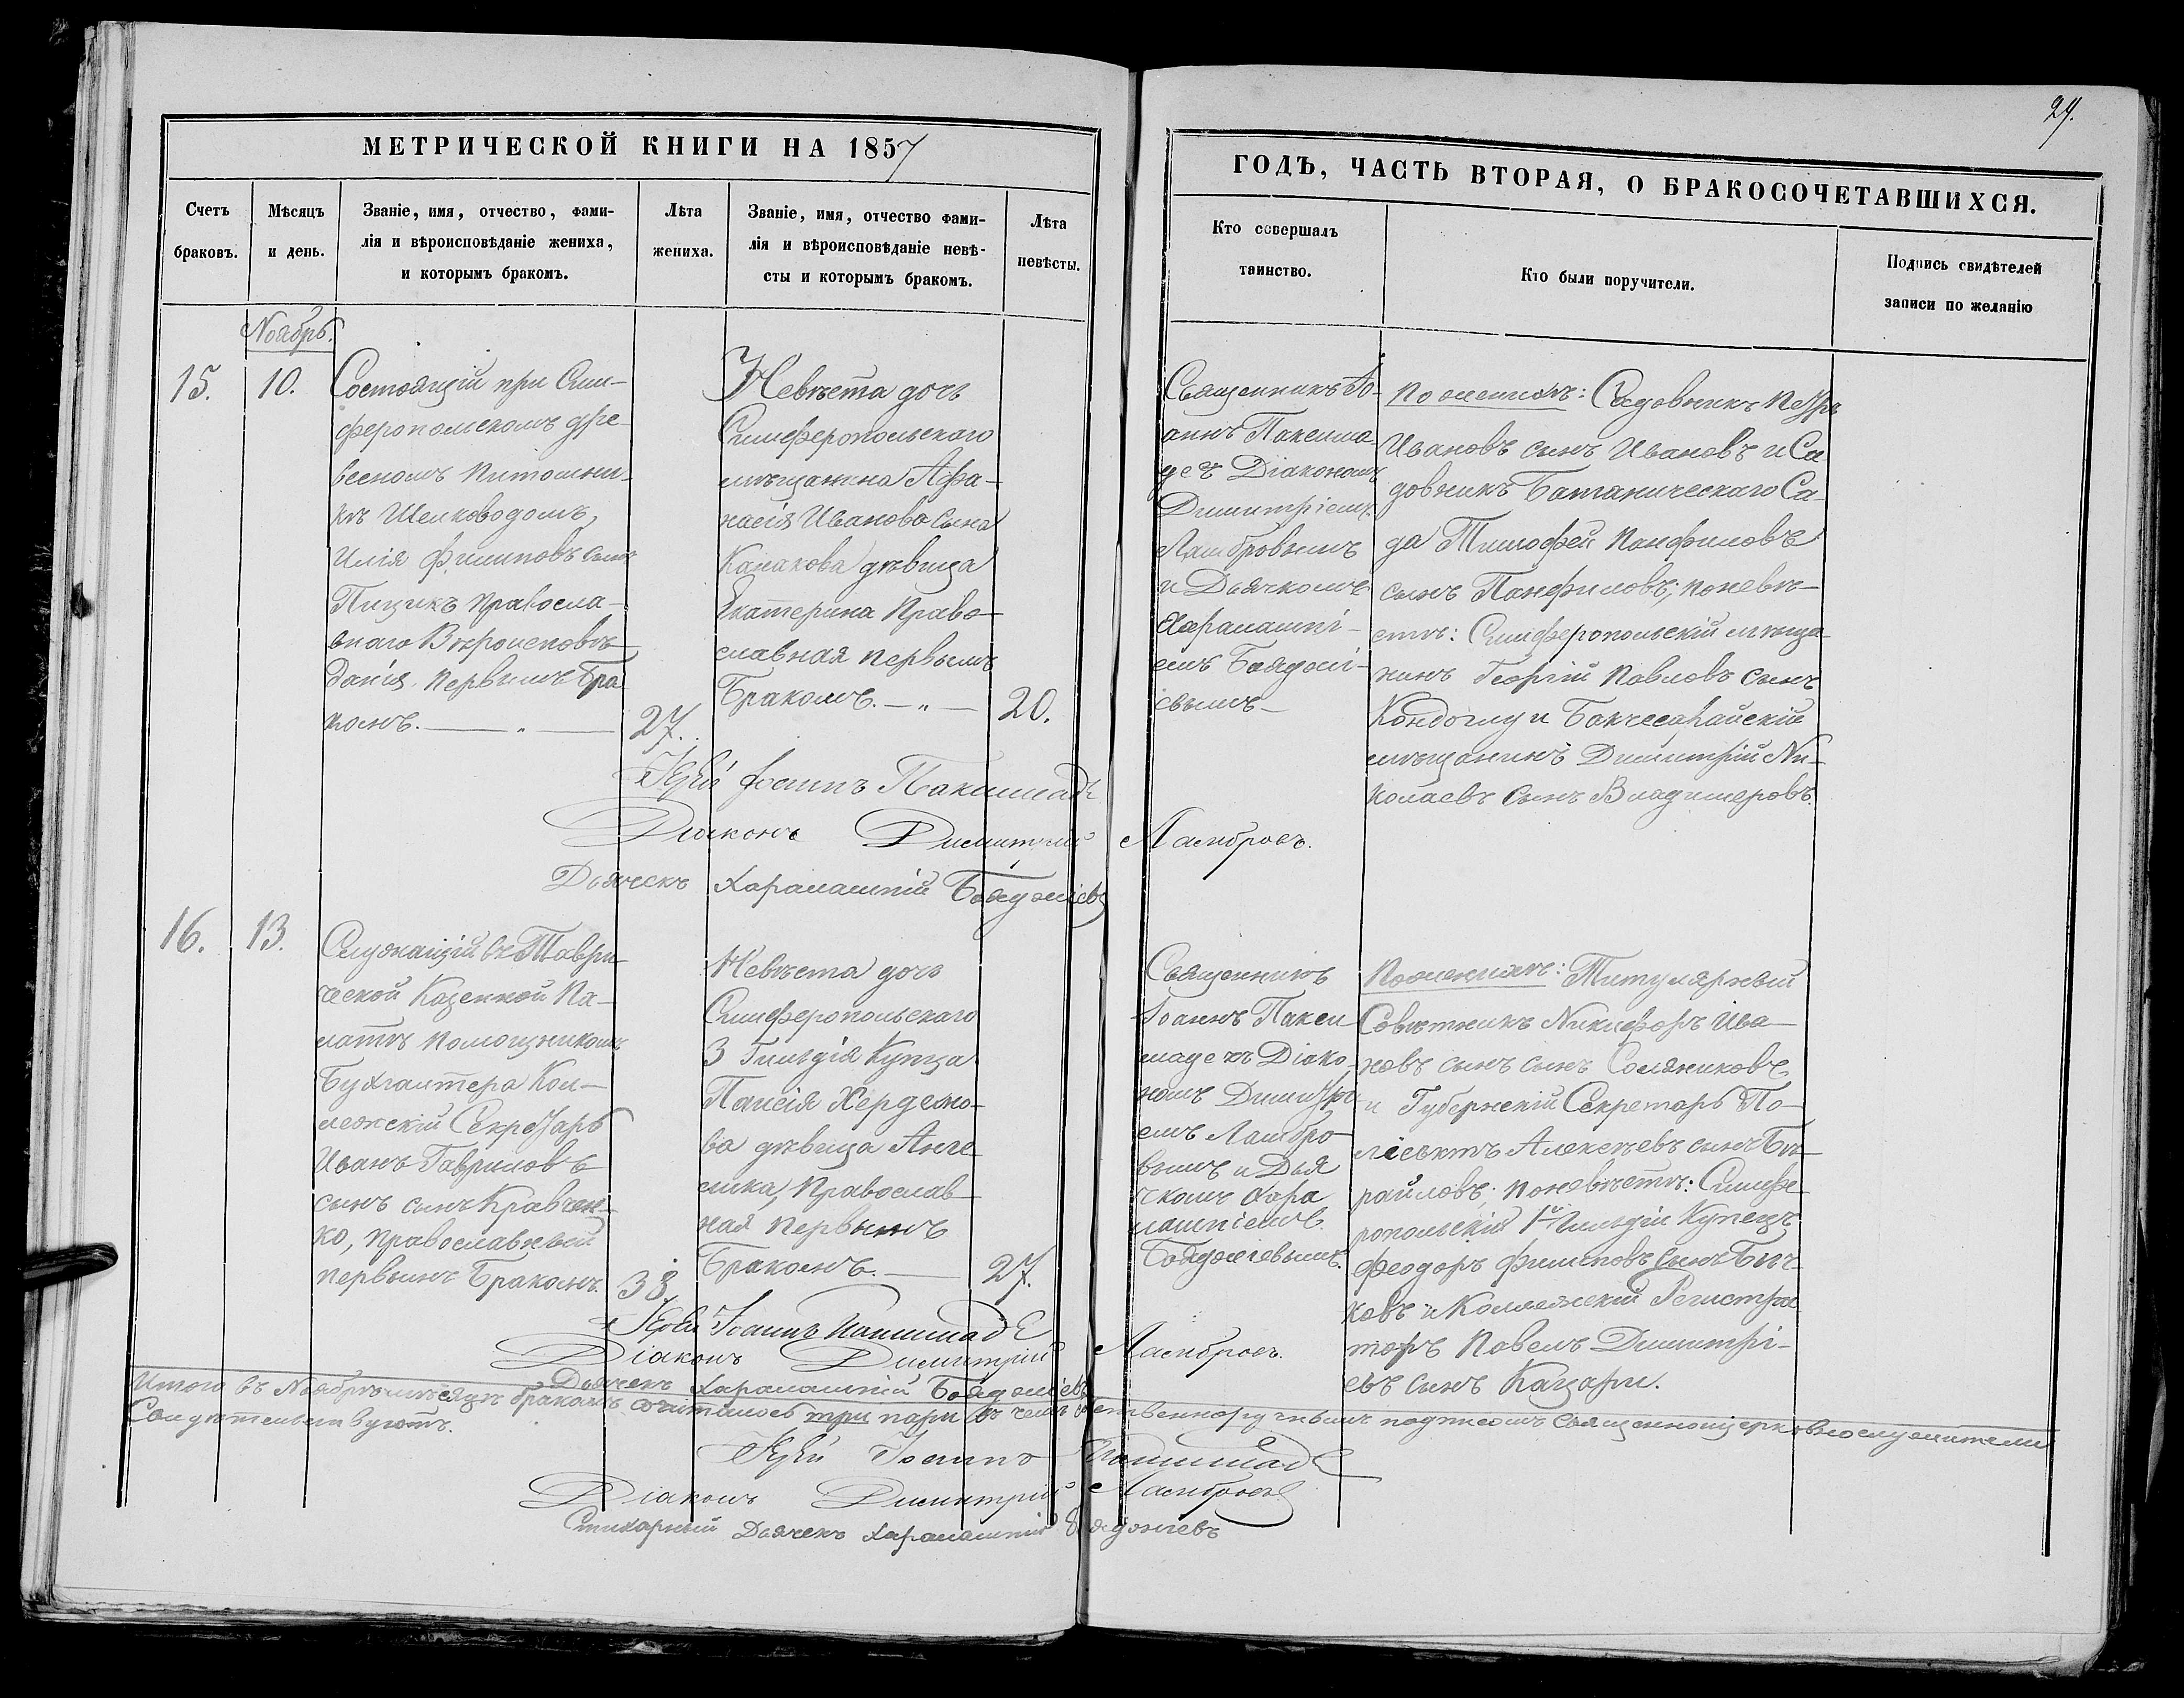 29.
МЕТРИЧЕСКОЙ КНИГИ НА 1857
ГОДЪ, ЧАСТЬ ВТОРАЯ, О БРАКОСОЧЕТАВШИХСЯ.
Счетъ
браковъ.
Мѣсяцъ
и день.
Званіе, имя, отчество, фами-
лія и вѣроисповѣданіе жениха,
и которымъ бракомъ.
Лѣта
жениха.
Званіе, имя, отчество фами-
лія и вѣроисповѣданіе невѣ-
сты и которымъ бракомъ.
Лѣта
невѣсты.
Кто совершалъ
таинство.
Кто были поручители.
Подпись свидѣтелей
записи по желанію
Ноябрь.
15.
10.
Состоящій при Сим-
феропольскомъ дре-
весномъ питомни-
кѣ Шелководомъ,
Илія Филиповъ сынъ
Пицикъ Правосла-
внаго Вѣроисповѣ-
данія. первымъ Бра-
комъ.
27.
Невѣста дочь
Симферопольскаго
мѣщанина Афа-
насія Иванова сына
Канакова дѣвица
Екатерина Право-
славная первымъ
Бракомъ.
20.
Священникъ Іо-
аннъ Паксима-
де съ Діакономъ
Димитріемъ
Ламбровымъ
и Дьячкомъ
Харалампі-
емъ Бояджи-
евымъ
По женихѣ: Садовникъ Петръ
Ивановъ сынъ Ивановъ и Са-
довникъ Ботаническаго Са-
да Тимофей Панфиловъ
сынъ Панфиловъ; по невѣ-
стѣ: Симферопольскій мѣща-
нинъ Георгій Павловъ сынъ
Кондоглу и Бакчесарайскій
мѣщанинъ Димитрій Ни-
колаевъ сынъ Владимеровъ.
Іерей Іоаннъ Паксимаде
Діаконъ Димитрій Ламбровъ.
Дьячекъ Харалампій Бояджіевъ
16.
13.
Служащій въ Таври-
ческой Казенной Па-
латѣ помощникомъ
Бухгалтера Кол-
лежскій Секретарь
Иванъ Гавриловъ
сынъ сынъ Кравчен-
ко, православный
первымъ Бракомъ.
38
Невѣста дочь
Симферопольскаго
3 Гильдія Купца
Паисія
ва дѣвица Анге-
лика, Православ-
ная первымъ
Бракомъ.
27.
Священникъ
Іоаннъ Пакси
маде съ Діако-
номъ Димитрі
емъ Ламбро-
вымъ и Дья
чкомъ Хара
лампіемъ
Бояджіевымъ.
По женихѣ: Титулярный
Совѣтникъ Никифоръ Ива-
новъ сынъ сынъ Соляниковъ
и Губернскій Секретарь По-
ліевктъ Алексѣевъ сынъ
по невѣстѣ: Симфе-
ропольскій 1й Гильдіи Купецъ
Феодоръ Филиповъ сынъ Быч-
ковъ и Коллежскій Регистра
торъ Павелъ Димитрі-
евъ сынъ Кацари.
Іерей Іоаннъ Паксимаде
Діаконъ Димитрій Ламбровъ.
Дьячекъ Харалампій Бояджіевъ
Итого въ Ноябрѣ мѣсяцѣ бракомъ сочиталось три пары въ чемъ собственноручнымъ подписомъ Священноцерковнослужители
Свидѣтельствуютъ.
Іерей Іоаннъ Паксимаде
Діаконъ Димитрій Ламбровъ
Стихарный Дьячекъ Харалампій Бояджіевъ